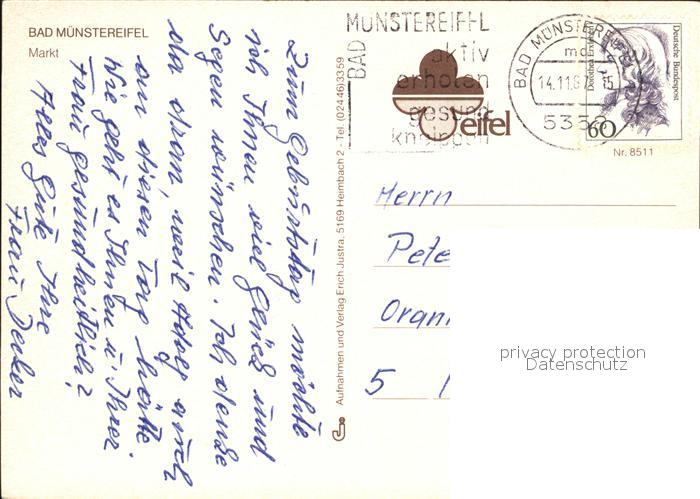 BAD MÜNSTEREIFEL
Markt
Zum Geburtstag möchte
ich Ihnen viel Glück und
Segen wünschen. Ich denke
da dran, weil Adolf auch
an diesen Tag hätte.
Wie geht es Ihnen u. Ihrer
Frau gesundheitlich?
Alles Gute Ihre
Frau Decker
Aufnahmen und Verlag Erich Justra, 5169 Heimbach 2 - Tel. (02446) 3359
BAD
MÜNSTEREIFEL
aktiv
erholen
gesund
kneippen
eifel
BAD MÜNSTEREIFEL
14.11.87 15
5358
Deutsche Bundespost
60
Nr. 8511
Herrn
Pete
Orani
5
privacy protection
Datenschutz